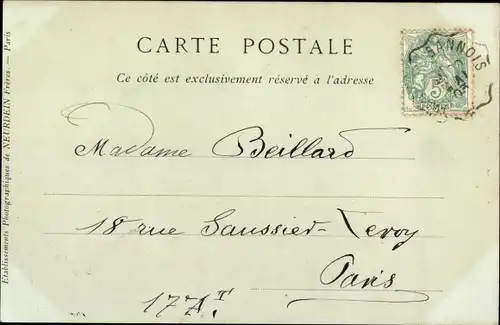 CARTE POSTALE
Ce côté est exclusivement réservé a l'adresse
SANNOIS
5
Madame Beillard
18 rue Saussier-Leroy
Paris
17 Aᵗ.
Etablissements Photographiques de NEURDEIN Frères. — Paris